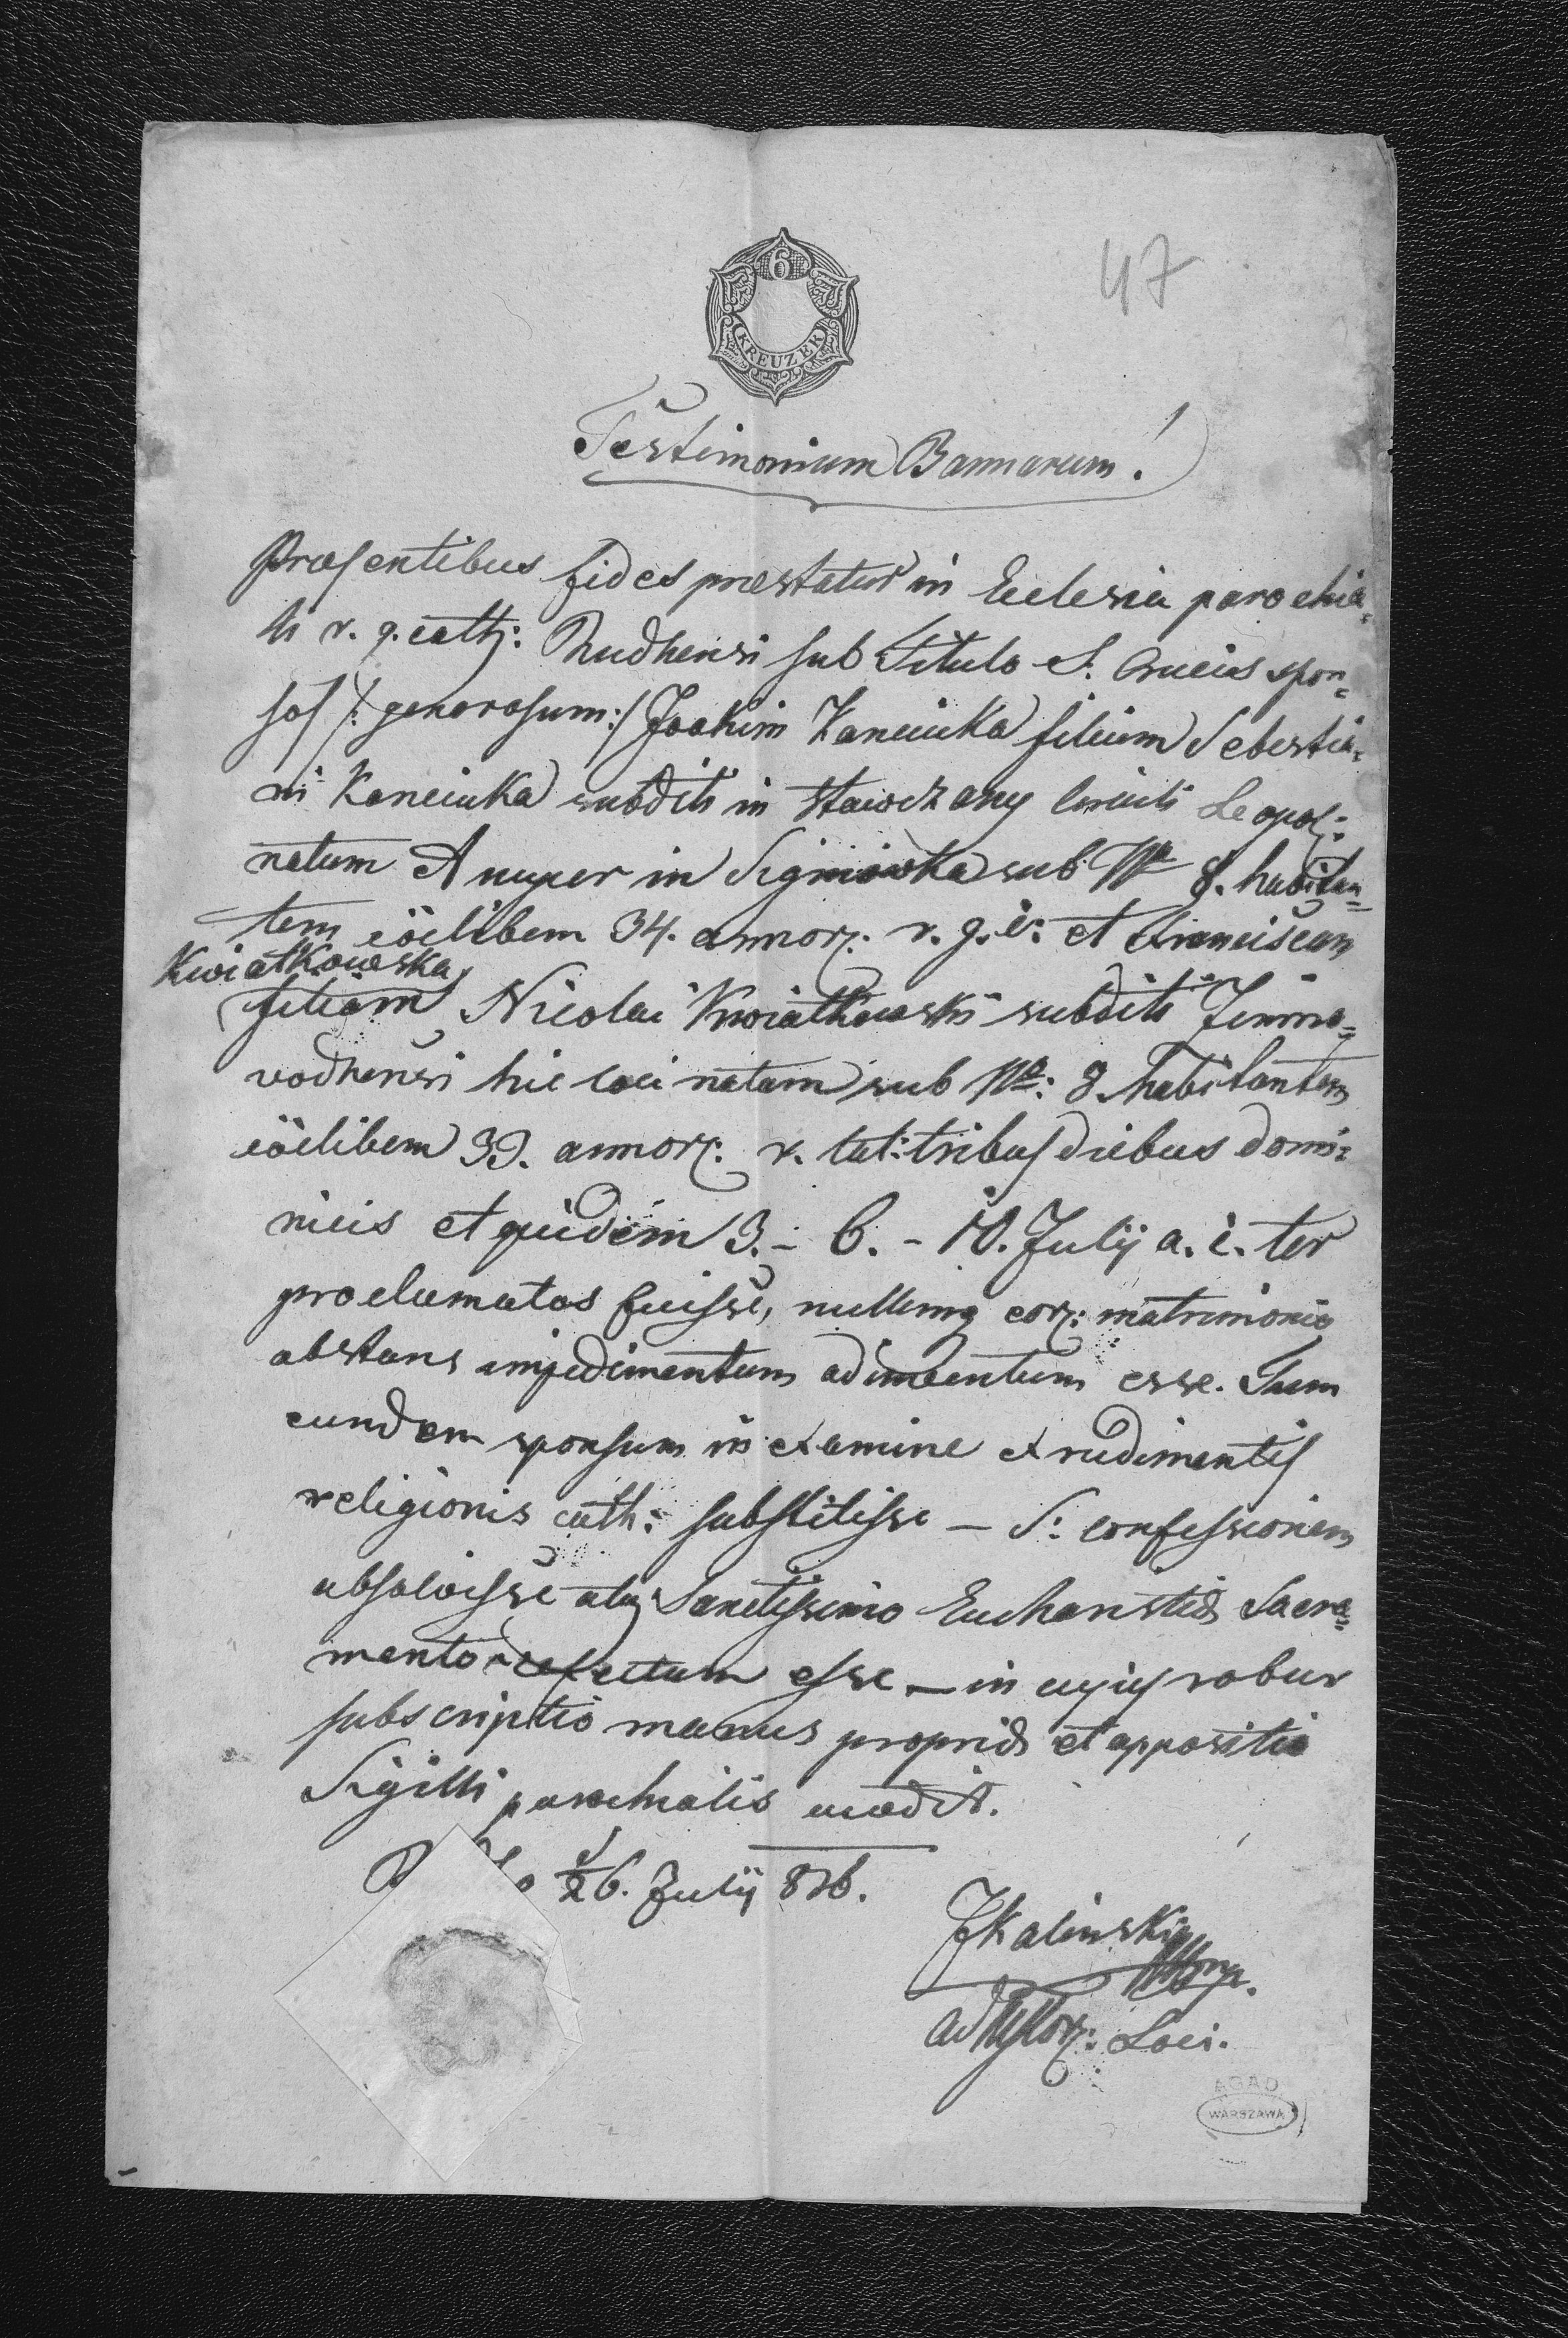 6
KREUZER
47
Testimonium Bannarum!
Præsentibus fides præstatur in Eclesia parochia=
li r. g. cath: Rudnensi sub Titulo S. Crucis spon=
sos /: generosum :/ Joakim Kaneiuka filium Sebestia=
ni Kaneiuka subditi in Stawczany Circuli Leopol:
natum A nuper in Sigmiowka sub No 8. habitan=
tem cöelibem 34. annor: r. g. c: et Franciscam
Kwiatkowska
filiam Nicolai Kwiatkowski subditi Zimno=
vodnensi hic loci natam sub No: 8. habitantem
cöelibem 39. annor: r. lat: tribus diebus domi=
nicis et quidem 3. - 6. - 10. Julij a. c. ter
proclamatos fuisse, nullumq eor: matrimonio
obstans impedimentum adinventum esse. Tum
eundem sponsum in examine ex rudimentis
religionis cath: substitisse — S: confessionem
absolvisse atq Sanctissimo Eucharistiæ Sacra=
mento refectum esse — in cujus robur
subscriptio manus propriæ et appositio
Sigilli parochialis
26. Julij
JKalinski
mp.
Loci.
AGAD
WARSZAWA